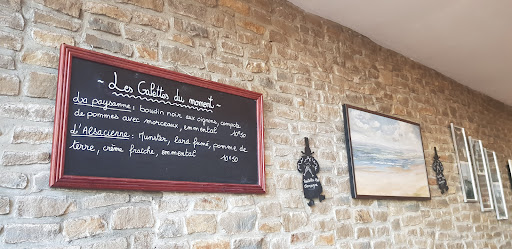 ~ Les Galettes du moment ~
La paysanne : boudin noir aux oignons, compote
de pommes avec morceaux, emmental 10€50
L'Alsacienne : Munster, lard fumé, pomme de
terre, crème fraîche, emmental 10€50